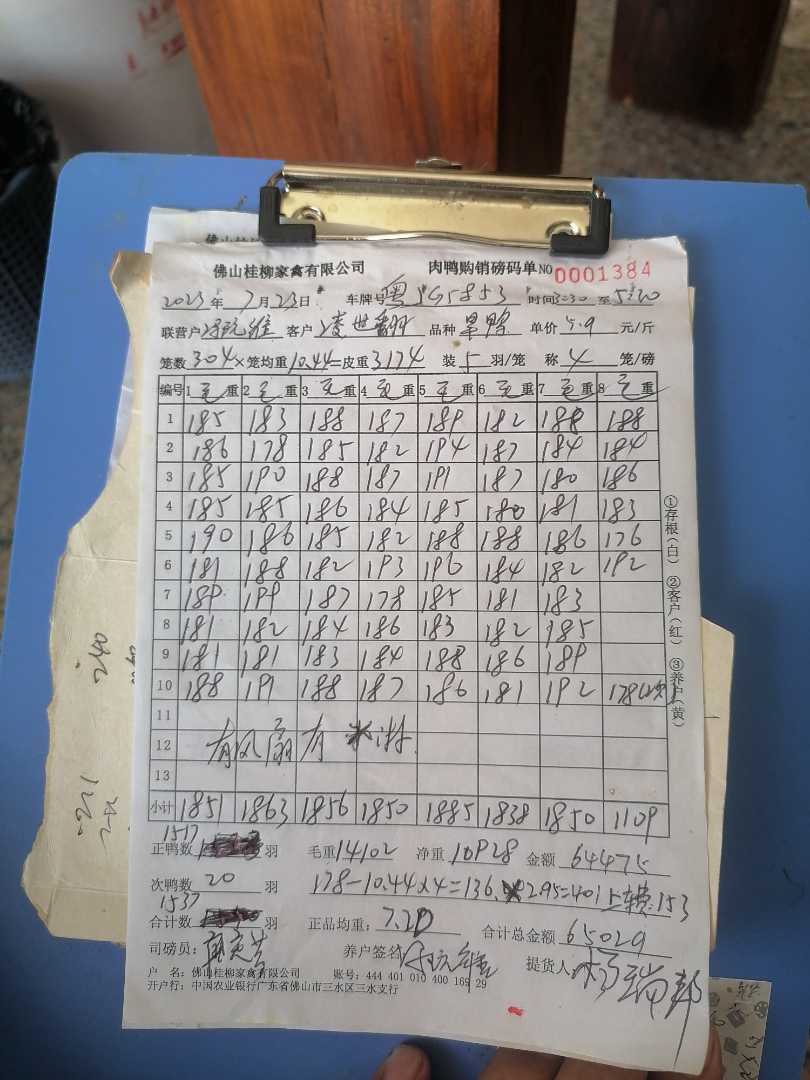 佛山桂柳家禽有限公司 肉鸭购销磅码单 NO 0001384
2023年7月23日 车牌号 粤 时间3:30至5:20
联营户 客户 凌世 品种 旱鸭 单价 5.9 元/斤
笼数304×笼均重10.44=皮重3174 装5羽/笼 称4笼/磅
编号 1毛重 2毛重 3毛重 4毛重 5毛重 6毛重 7毛重 8毛重
1 185 183 188 187 189 182 188 188
2 186 178 185 182 194 187 184 184
3 185 190 188 187 191 187 180 186
4 185 185 186 184 185 180 181 183
5 190 186 185 182 188 188 186 176
6 181 188 182 193 196 184 182 192
7 189 199 187 178 185 181 183
8 181 182 184 186 183 182 185
9 181 181 183 184 188 186 189
10 188 191 188 187 186 181 192 178(次)
11
12 有风扇有水淋
13
小计 1851 1863 1856 1850 1885 1838 1850 1109
1517
正鸭数 羽 毛重14102 净重10928 金额64475
次鸭数 20 羽 178-10.44×4=136. 2.95=401 上车费:153
1537
合计数 羽 正品均重:7.20 合计总金额 65029
司磅员: 养户签名 提货人: 杨瑞邦
户 名: 佛山桂柳家禽有限公司 账号: 444 401 010 400 169 29
开户行: 中国农业银行广东省佛山市三水区三水支行
①存根(白) ②客户(红) ③养户(黄)